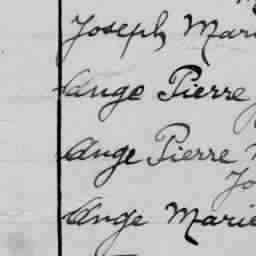 Joseph Mari
Ange Pierre
Ange Pierre
Jo
Ange Marie